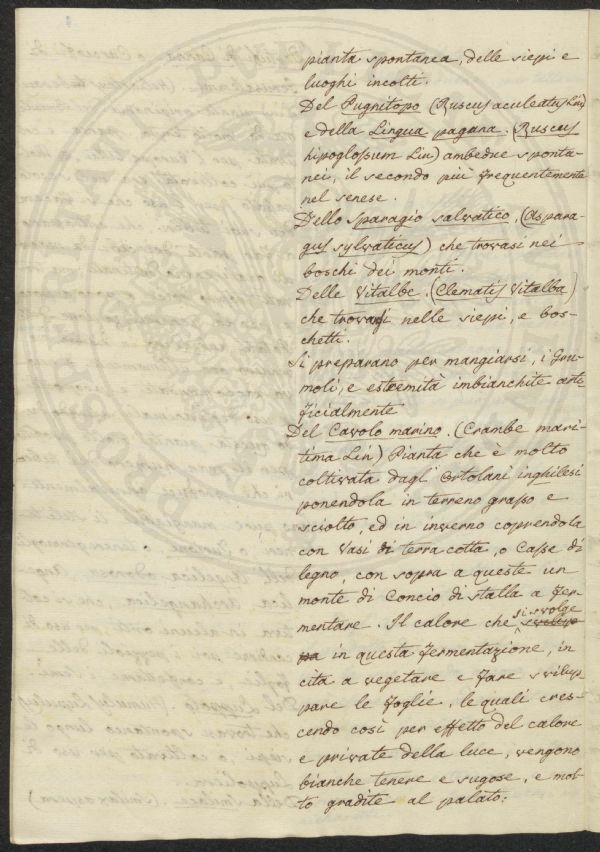 pianta spontanea, delle siepi e
luoghi incolti.
Del Pugnitopo (Ruscus aculeatus Lin)
e della Lingua pagana. (Ruscus
hipoglossum Lin) ambedue sponta-
nei, il secondo più frequentemente
nel senese.
Dello Sparagio salvatico, (Aspara-
gus sylvaticus) che trovasi nei
boschi dei monti.
Delle Vitalbe. (Clematis Vitalba)
che trovasi nelle siepi, e bos-
chetti.
Si preparano per mangiarsi, i Gru-
moli, e estremità imbianchite arti-
ficialmente
Del Cavolo marino. (Crambe mari-
tima Lin) Pianta che è molto
coltivata dagl' Ortolani inghilesi
ponendola in terreno grasso e
sciolto, ed in inverno coprendola
con Vasi di terra cotta, o Casse di
legno, con sopra a queste un
monte di Concio di stalla a fer-
mentare. Il calore che si svolge
in questa fermentazione, in
cita a vegetare e fare svilup
pare le foglie, le quali cres-
cendo così per effetto del calore
e private della luce, vengono
bianche tenere e sugose, e mol-
to gradite al palato;